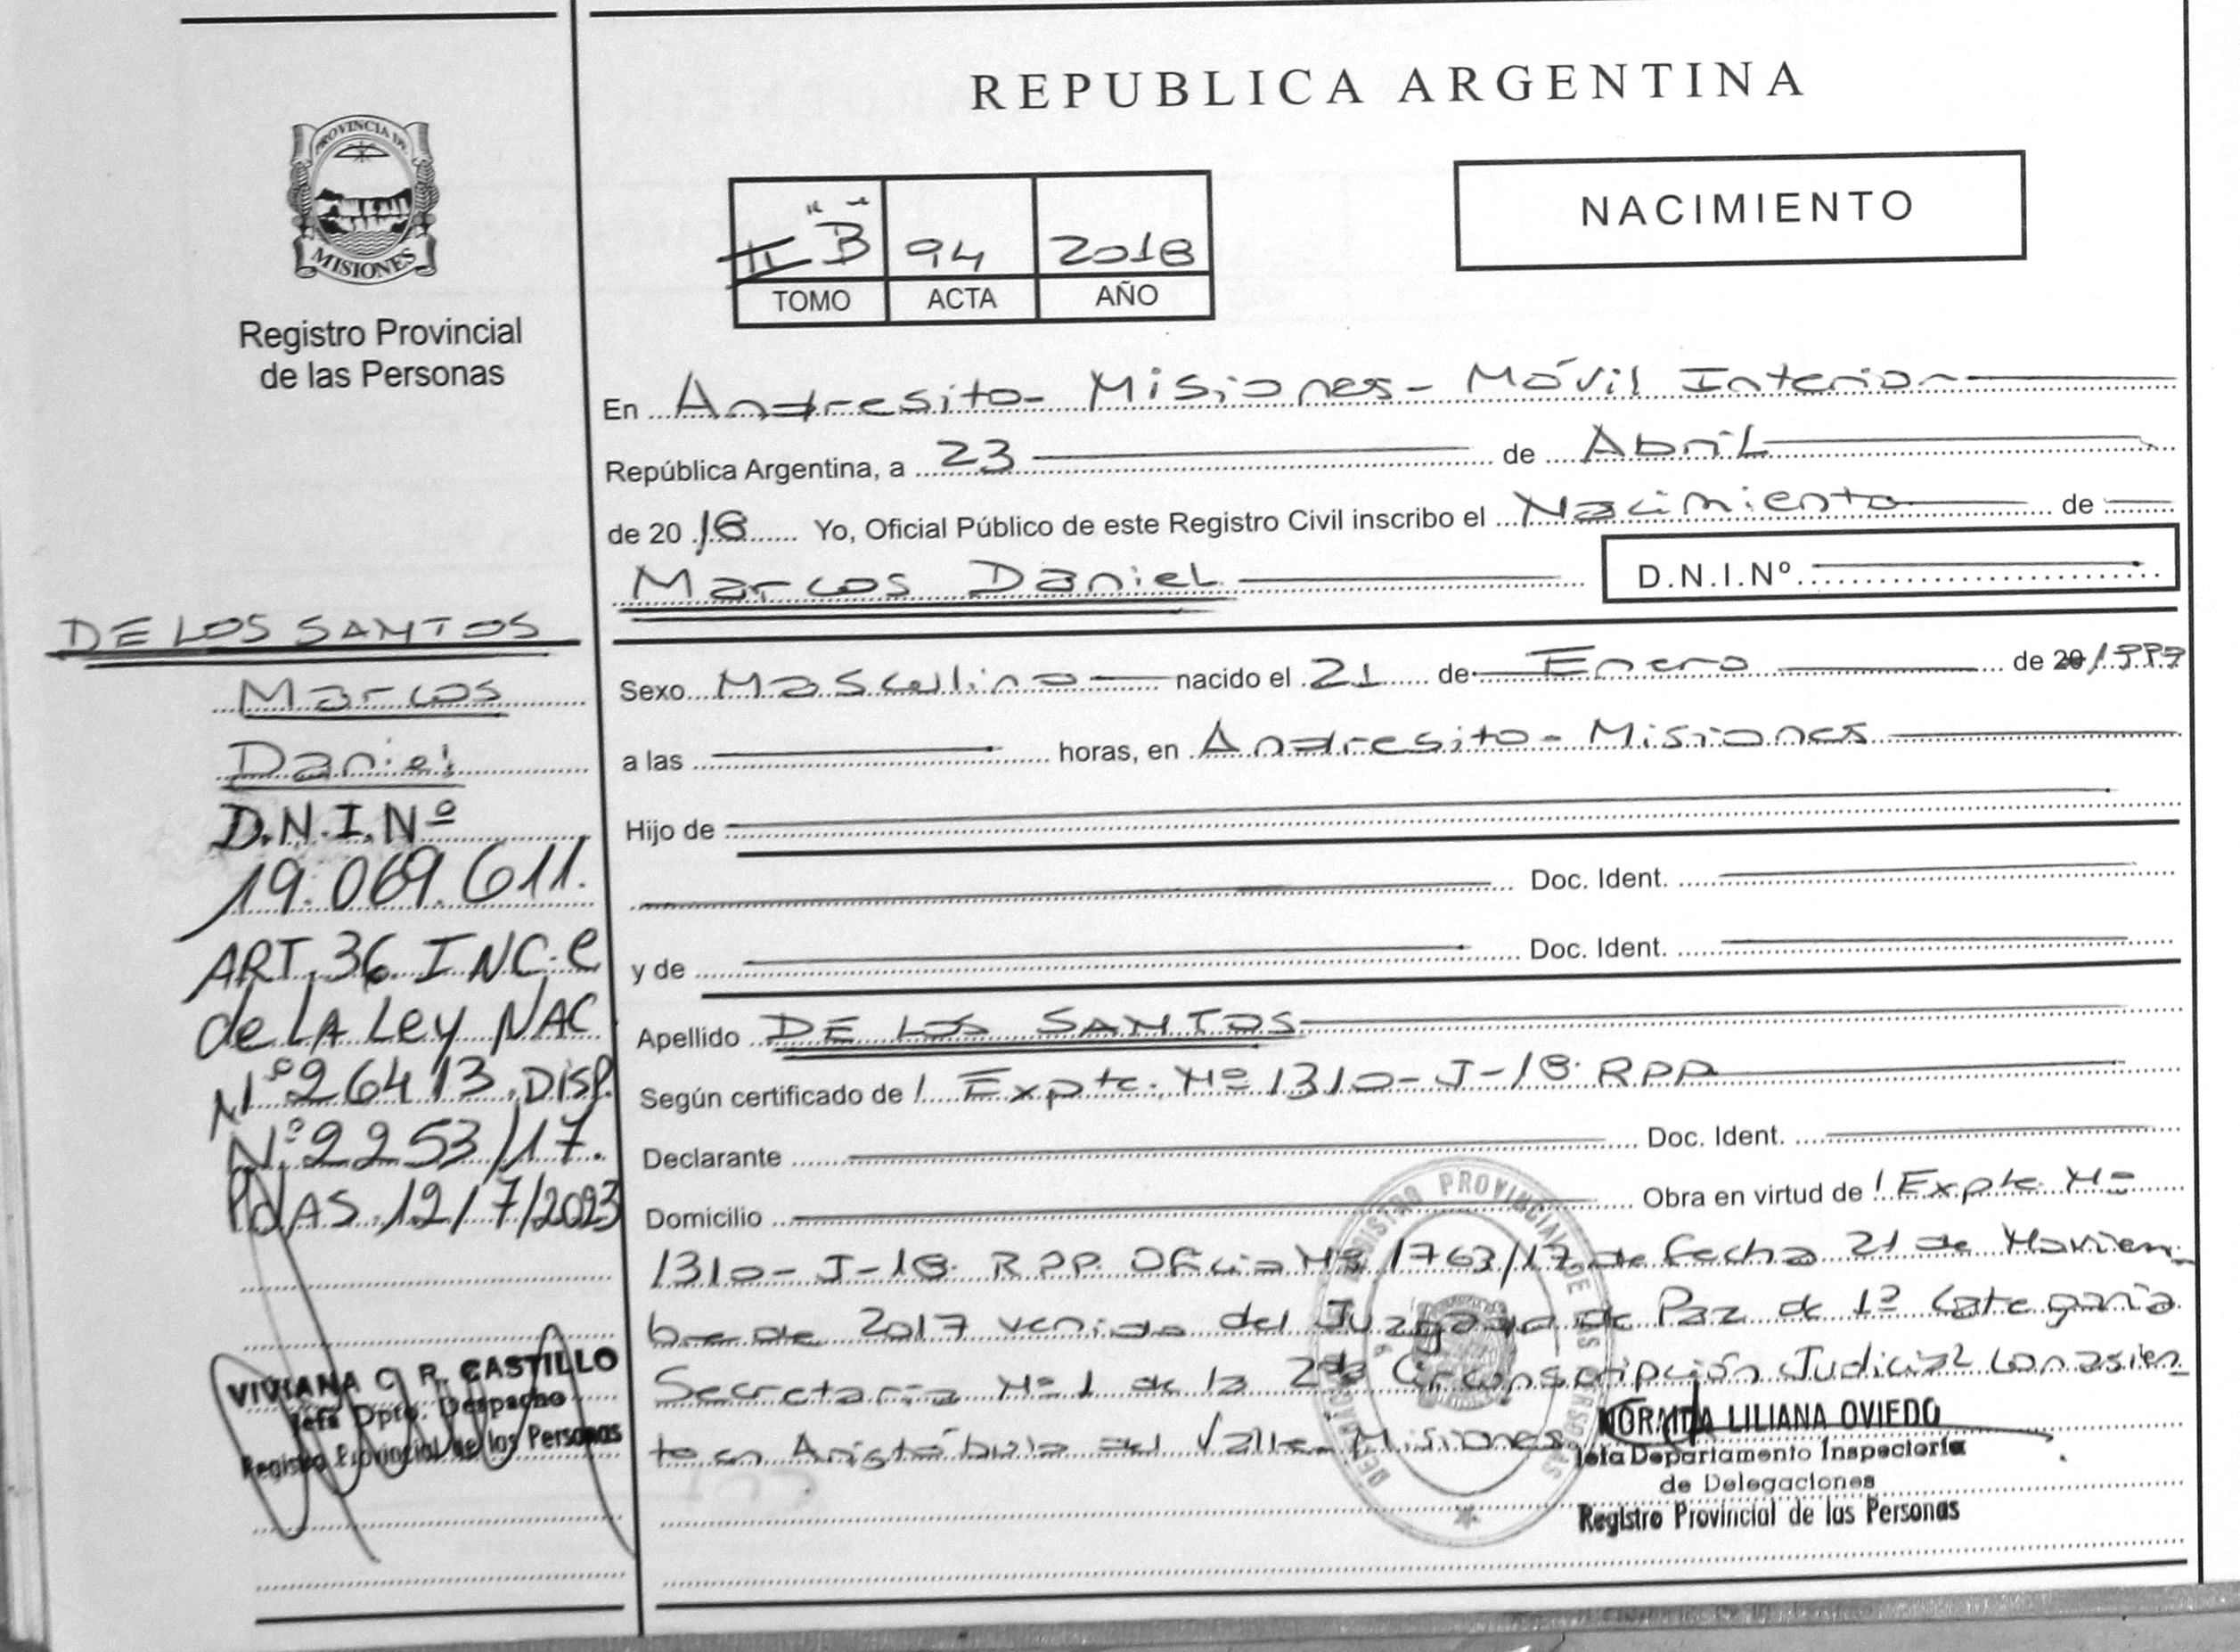 PROVINCIA DE
MISIONES
Registro Provincial
de las Personas
DE LOS SANTOS
Marcos
Daniel
D.N.I.Nº
19.069.611.
ART. 36. INC. e
de LA Ley NAC
Nº 26413. DISP.
Nº 2253/17.
Pdas. 12/7/2023
VIVIANA C. R. CASTILLO
Jefa Dpto. Despacho
Registro Provincial de las Personas
REPUBLICA ARGENTINA
NACIMIENTO
II "B" 94 2018
TOMO ACTA AÑO
En Andresito - Misiones - Móvil Interior
República Argentina, a 23 de Abril
de 2018 Yo, Oficial Público de este Registro Civil inscribo el Nacimiento de
Marcos Daniel D.N.I.Nº
Sexo Masculino nacido el 21 de Enero de 20/1999
a las horas, en Andresito - Misiones
Hijo de
Doc. Ident.
y de Doc. Ident.
Apellido DE LOS SANTOS
Según certificado de / Expte. Nº 1310-J-18. RPP
Declarante Doc. Ident.
Domicilio Obra en virtud de / Expte. Nº
1310-J-18. RPP. Oficio Nº 1763/17 de fecha 21 de Novien
bre de 2017 venido del Juzgado de Paz de 1º Categoria
Secretaría Nº 1 de la 2da Circunscripción Judicial con asien
to en Aristóbulo del Valle - Misiones
REGISTRO PROVINCIAL DE LAS PERSONAS
NORMA LILIANA OVIEDO
Jefa Departamento Inspectoría
de Delegaciones
Registro Provincial de las Personas